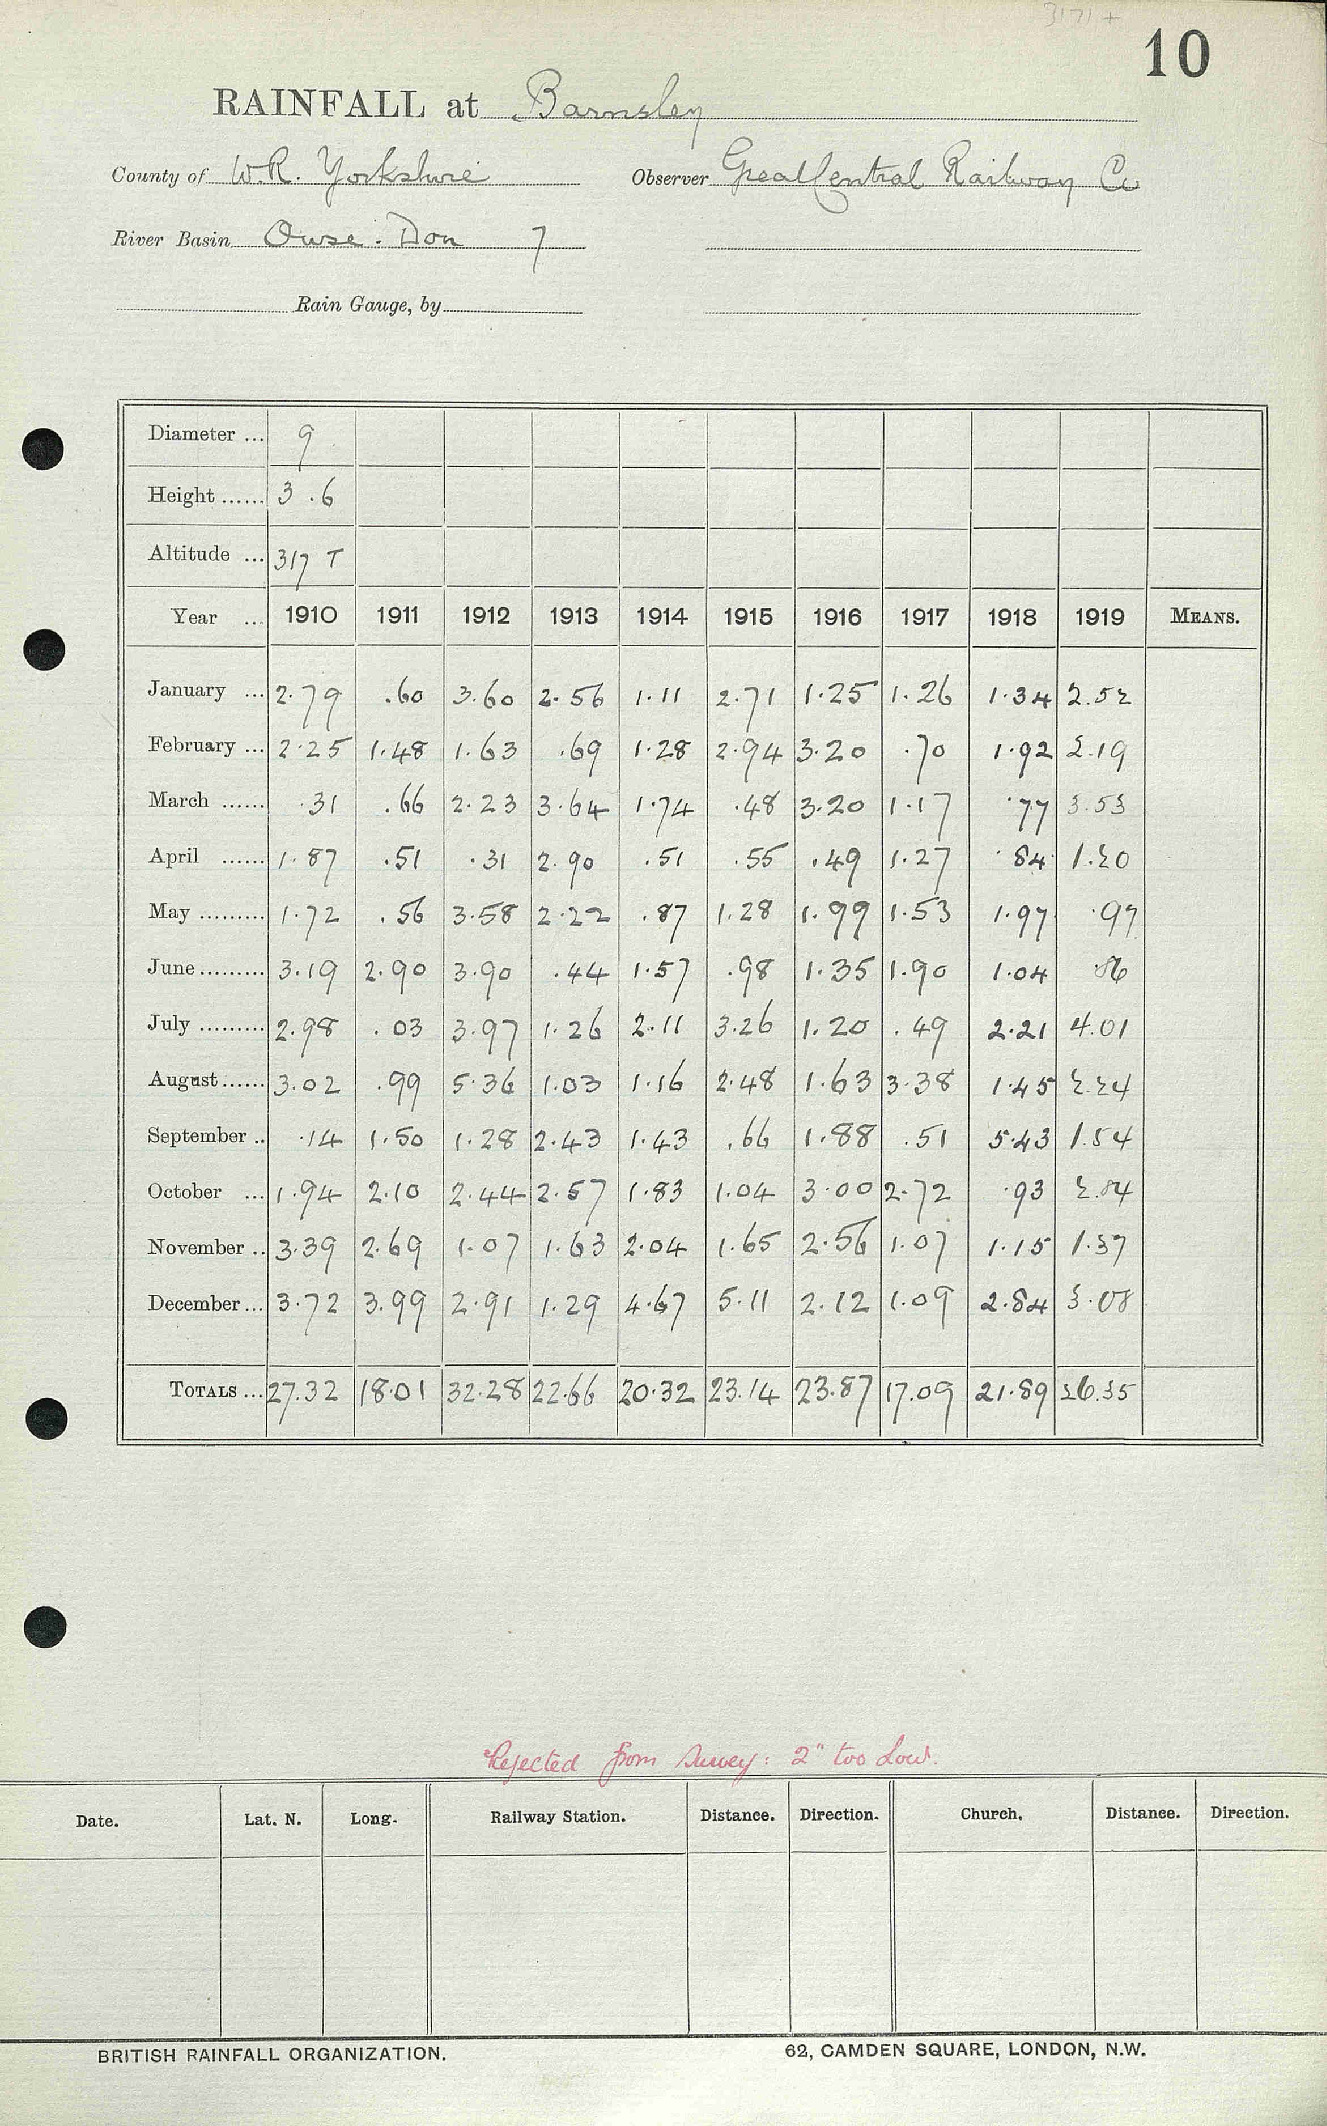 3171 +
10
RAINFALL at Barnsley
County of W.R. Yorkshire Observer Great Central Railway Co
River Basin Ouse. Don 7
Rain Gauge, by
Diameter ... 9
Height ...... 3 .6
Altitude ... 317 T
Year ... 1910 1911 1912 1913 1914 1915 1916 1917 1918 1919 MEANS.
January ... 2.79 .60 3.60 2.56 1.11 2.71 1.25 1.26 1.34 2.52
February ... 2.25 1.48 1.63 .69 1.28 2.94 3.20 .70 1.92 2.19
March ...... .31 .66 2.23 3.64 1.74 .48 3.20 1.17 .77 3.53
April ...... 1.87 .51 .31 2.90 .51 .55 .49 1.27 .84 1.20
May ......... 1.72 .56 3.58 2.22 .87 1.28 1.99 1.53 1.97 .97
June ......... 3.19 2.90 3.90 .44 1.57 .98 1.35 1.90 1.04 .86
July ......... 2.98 .03 3.97 1.26 2.11 3.26 1.20 .49 2.21 4.01
August ...... 3.02 .99 5.36 1.03 1.16 2.48 1.63 3.38 1.45 2.24
September .. .14 1.50 1.28 2.43 1.43 .66 1.88 .51 5.43 1.54
October ... 1.94 2.10 2.44 2.57 1.83 1.04 3.00 2.72 .93 2.84
November .. 3.39 2.69 1.07 1.63 2.04 1.65 2.56 1.07 1.15 1.37
December ... 3.72 3.99 2.91 1.29 4.67 5.11 2.12 1.09 2.84 3.08
TOTALS ... 27.32 18.01 32.28 22.66 20.32 23.14 23.87 17.09 21.89 26.35
Rejected from Survey: 2" too low.
Date. Lat. N. Long. Railway Station. Distance. Direction. Church. Distance. Direction.
BRITISH RAINFALL ORGANIZATION. 62, CAMDEN SQUARE, LONDON, N.W.